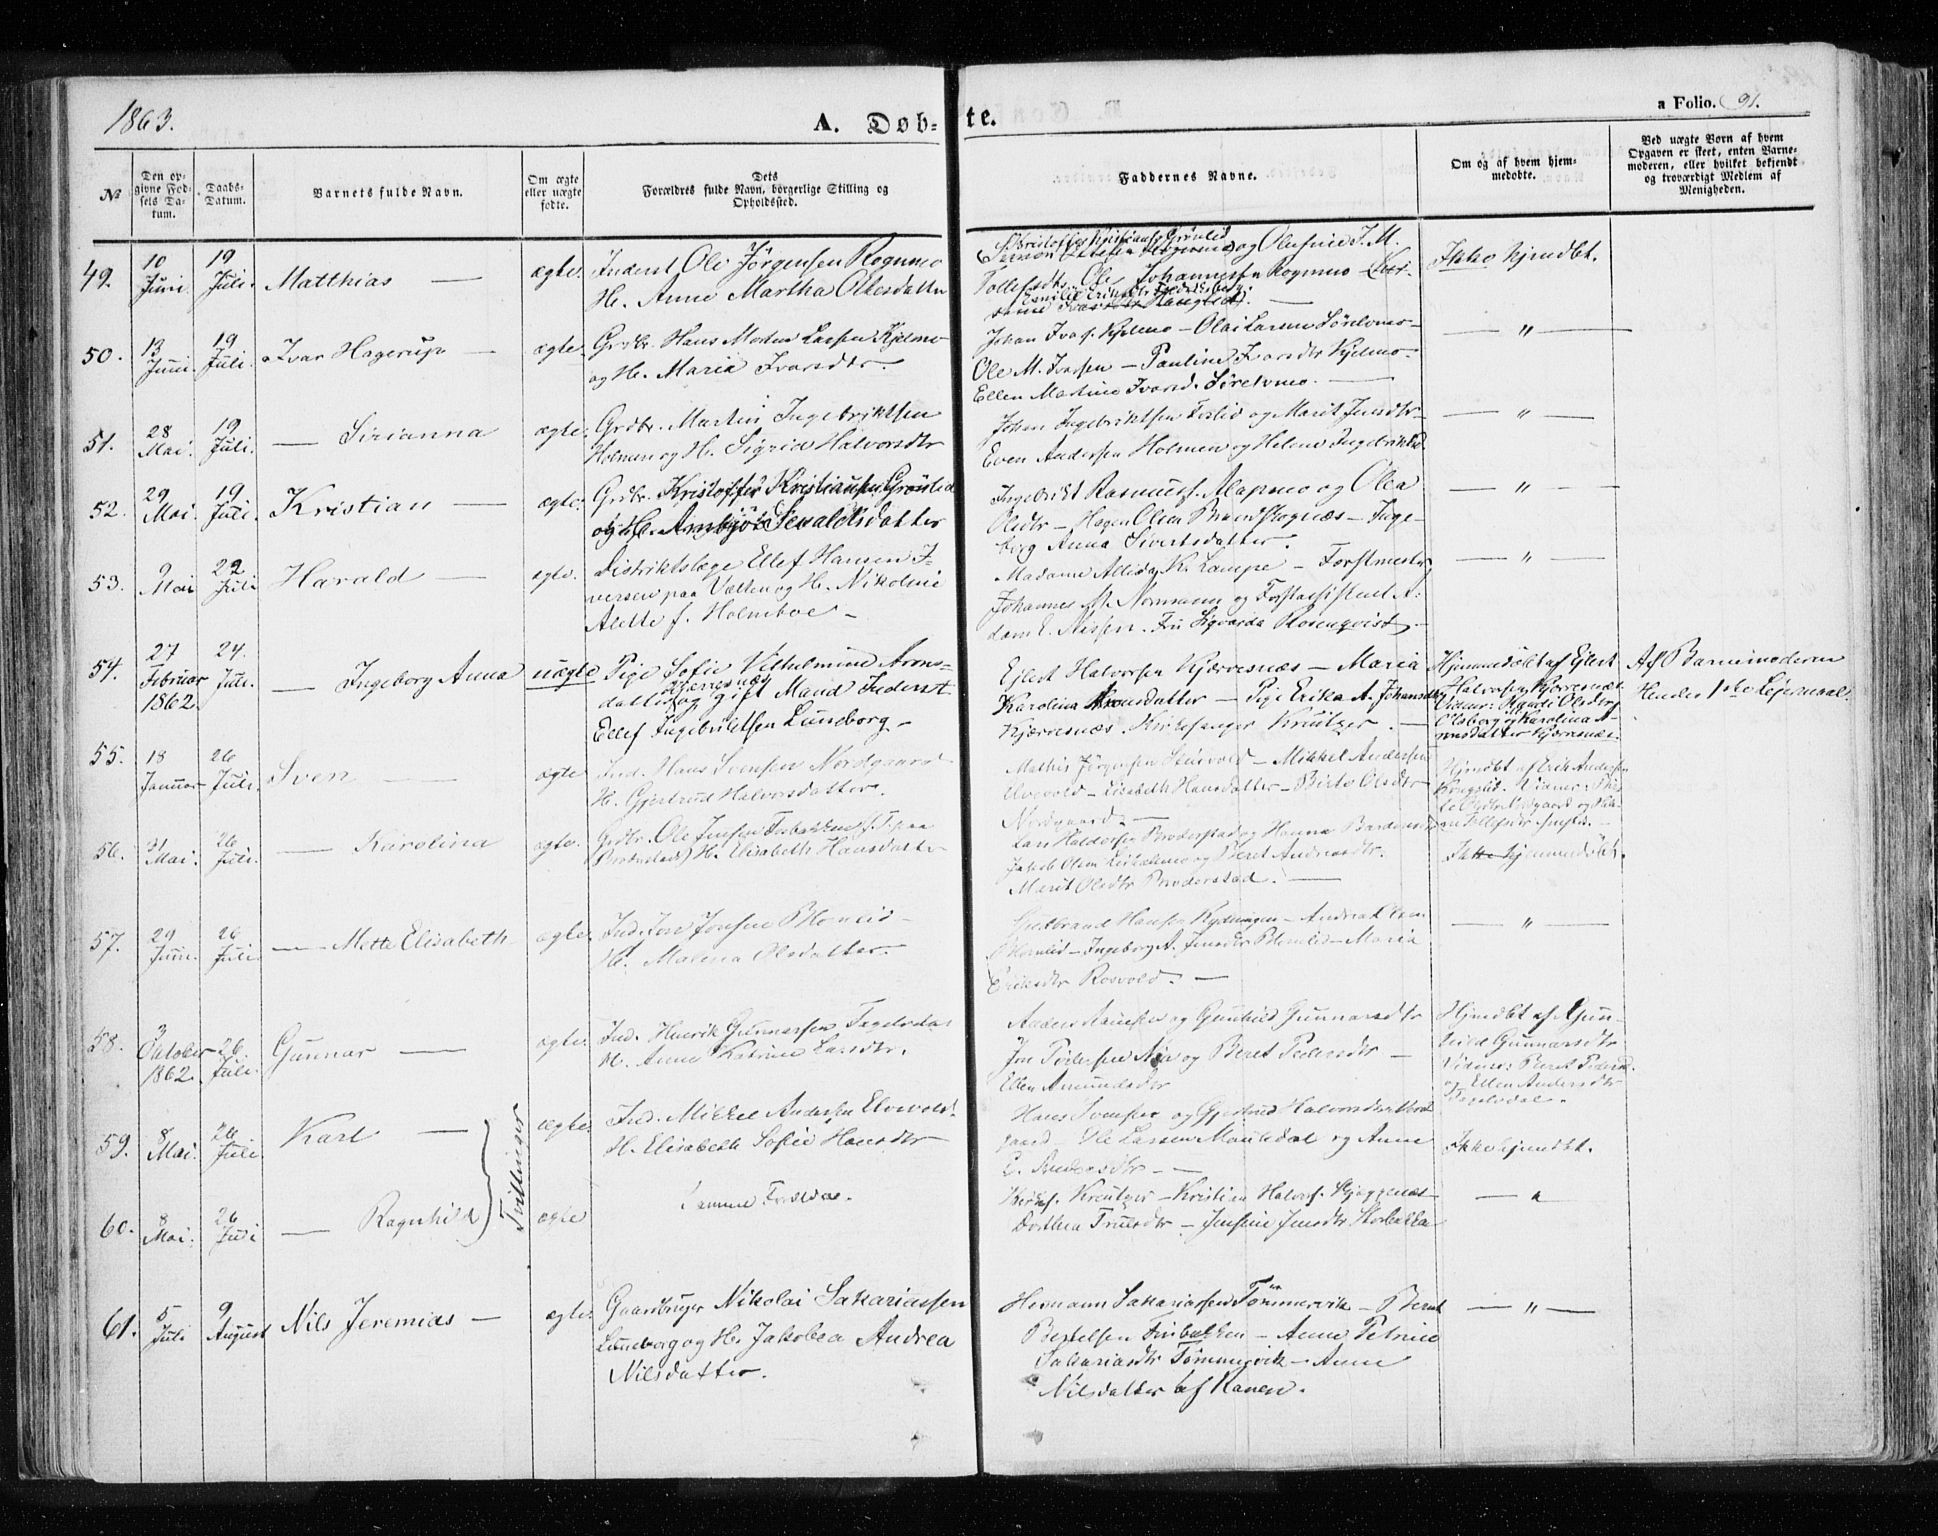 1863.
A. Døb-
te.
a Folio. 91.
№
Den op-
givne Fød-
sels Da-
tum.
Daabs-
Datum.
Barnets fulde Navn.
Om ægte
eller uægte
fødte.
Dets
Forældres fulde Navn, borgerlige Stilling og
Opholdssted.
Faddernes Navne.
Om og af hvem hjem-
medøbte.
Ved uægte Børn af hvem
Opgaven er skeet, enten Barne-
moderen, eller hvilket bekjendt
og troværdigt Medlem af
Menigheden.
49.
10
Juni
19
Juli.
Matthias —
ægte.
Inderst Ole Jørgensen Rognmo
H. Anne Martha Olesdatter
Kristoffer Kristians. Grønlid
og Olufine J. M.
Tollefsdtr. Ole Johannessen Rognmo
Emilie Eriksdtr Fredriksberg.
Ikke hjmdbt.
50.
13
Juni
19
Juli.
Ivar Hagerup —
ægte.
Grdbr. Hans Morten Larsen Kjelmo
og H. Maria Ivarsdtr.
Johan Ivars. Kjelmo – Olai Larsen Sørelvmo –
Ole M. Ivarsen – Pauline Ivarsdtr Kjelmo –
Ellen Martine Ivarsd. Sørelvmo. —
— " —
51.
28
Mai.
19
Juli.
— Sirianna
ægte.
Grdbr. Martin Ingebriktsen
Holmen og H. Sigrid Halvorsdtr
Johan Ingebriktsen Foslid og Marit Jensdtr –
Even Andersen Holmen og Helene Ingebriktsd.
— " —
52.
29
Mai.
19
Juli.
Kristian —
ægte.
Grdbr. Kristoffer Kristiansen Grønlid
og H. Ambjør Sevaldsdatter
Ingebrikt Rasmuss. Alapmo og Olea
Olsdtr – Hagen Olsen Brandskognæs – Inge-
borg Anna Sivertsdatter.
— " —
53.
9
Mai
22
Juli
Harald —
ægte.
Distriktslæge Ellef Hansen I-
versen paa Vælten og H. Nikoline
Alette f. Holmboe –
Madame Allida K. Lampe – Forstmester
Johannes M. Normann og Forstassistent A-
dam E. Nissen. Fru Sigvarda Rosenqvist –
— " —
54.
27
Februar
1862.
24.
Juli.
— Ingeborg Anna
uægte
Pige Sofie Vilhelmine Arons-
Kjerresnæs
datter og gift Mand Inderst
Ellef Ingebriktsen Lundborg –
Ejlert Halvorsen Kjærvesnæs – Maria
Karolina Aronsdatter – Pige Erika A. Johansdtr
Kjærvesnæs. Kirkesanger Kreutzer. —
Hjemmedøbt af Ejlert
Halvorsen Kjærvesnæs
Vidner: Randi Olsdtr
Olsborg og Karolina A-
ronsdatter Kjærvesnæs.
Af Barnemoderen
Hendes 1ste Lejermaal.
55.
18
Januar
26
Juli.
Sven —
ægte
Ind. Hans Svensen Nordgaard
H. Gjertrud Halvorsdatter.
Mathis Jørgensen – Mikkel Andersen
Elvevold – Elisabeth Hansdatter – Birte Olsdtr
Nordgaard. —
Hjmdbt af Erik Andersen
Kongslid. Vidner: Bir-
te Olsdtr Nordgaard og
56.
31
Mai.
26
Juli.
— Karolina
ægte.
Grdbr. Ole Jensen
H. Elisabeth Hansdatter
Lars Haldorsen Broderstad og Hanna Bardosen
Jakob Olsen og Beret Andreasdtr.
Marit Olsdtr Broderstad. —
Ikke hjemmedøbt.
57.
29
Juni.
26
Juli.
— Mette Elisabeth
ægte.
Ind. Jon Jonsen Blomlid –
H. Malena Olsdatter.
Guldbrand Hansen Rydningen – Andreas Olsen
Blomlid – Ingeborg A. Jensdtr Blomlid – Maria
Eriksdtr Rosvold. —
— " —
58.
3
Oktober
1862.
26
Juli.
Gunnar —
ægte.
Ind. Henrik Gunnarsen Fagerdal
H. Anne Katrine Larsdtr.
Anders og Gunhild Gunnarsdtr
Jon Pedersen Moe og Beret Pedersdtr –
Ellen Amundsdtr
Hjmdbt af Gun-
hild Gunnarsdtr
Vidner: Beret Pedersd.
og Ellen Andersdtr
Fagerdal.
59.
8
Mai.
26
Juli
Karl —
Tvillinger
ægte.
Ind. Mikkel Andersen Elvevold.
H. Elisabeth Sofie Hansdtr
Hans Svensen og Gjertrud Halvorsdtr Nord-
gaard – Ole Larsen Mauksdal og Anne
E. Andersdtr – —
Ikke hjmdbt.
60.
8
Mai.
26
Juli
— Ragnhild
ægte
Samme Forældre.
Kirkes. Kreutzer – Kristian Halvors. Skjæggenæs
Dorthea Truelsdtr – Jensine Jensdtr Storbakka
— " —
61.
5
Juli
9
August
Nils Jeremias —
ægte.
Gaardbruger Nikolai Sakariassen
Lundborg og H. Jakobea Andrea
Nilsdatter.
Hermann Sakariassen Tømmervik – Bernt
Bertelsen Finbakken – Anne Petrine
Sakariasdtr Tømmervik – Anne
Nilsdatter af Ranen.
— " —